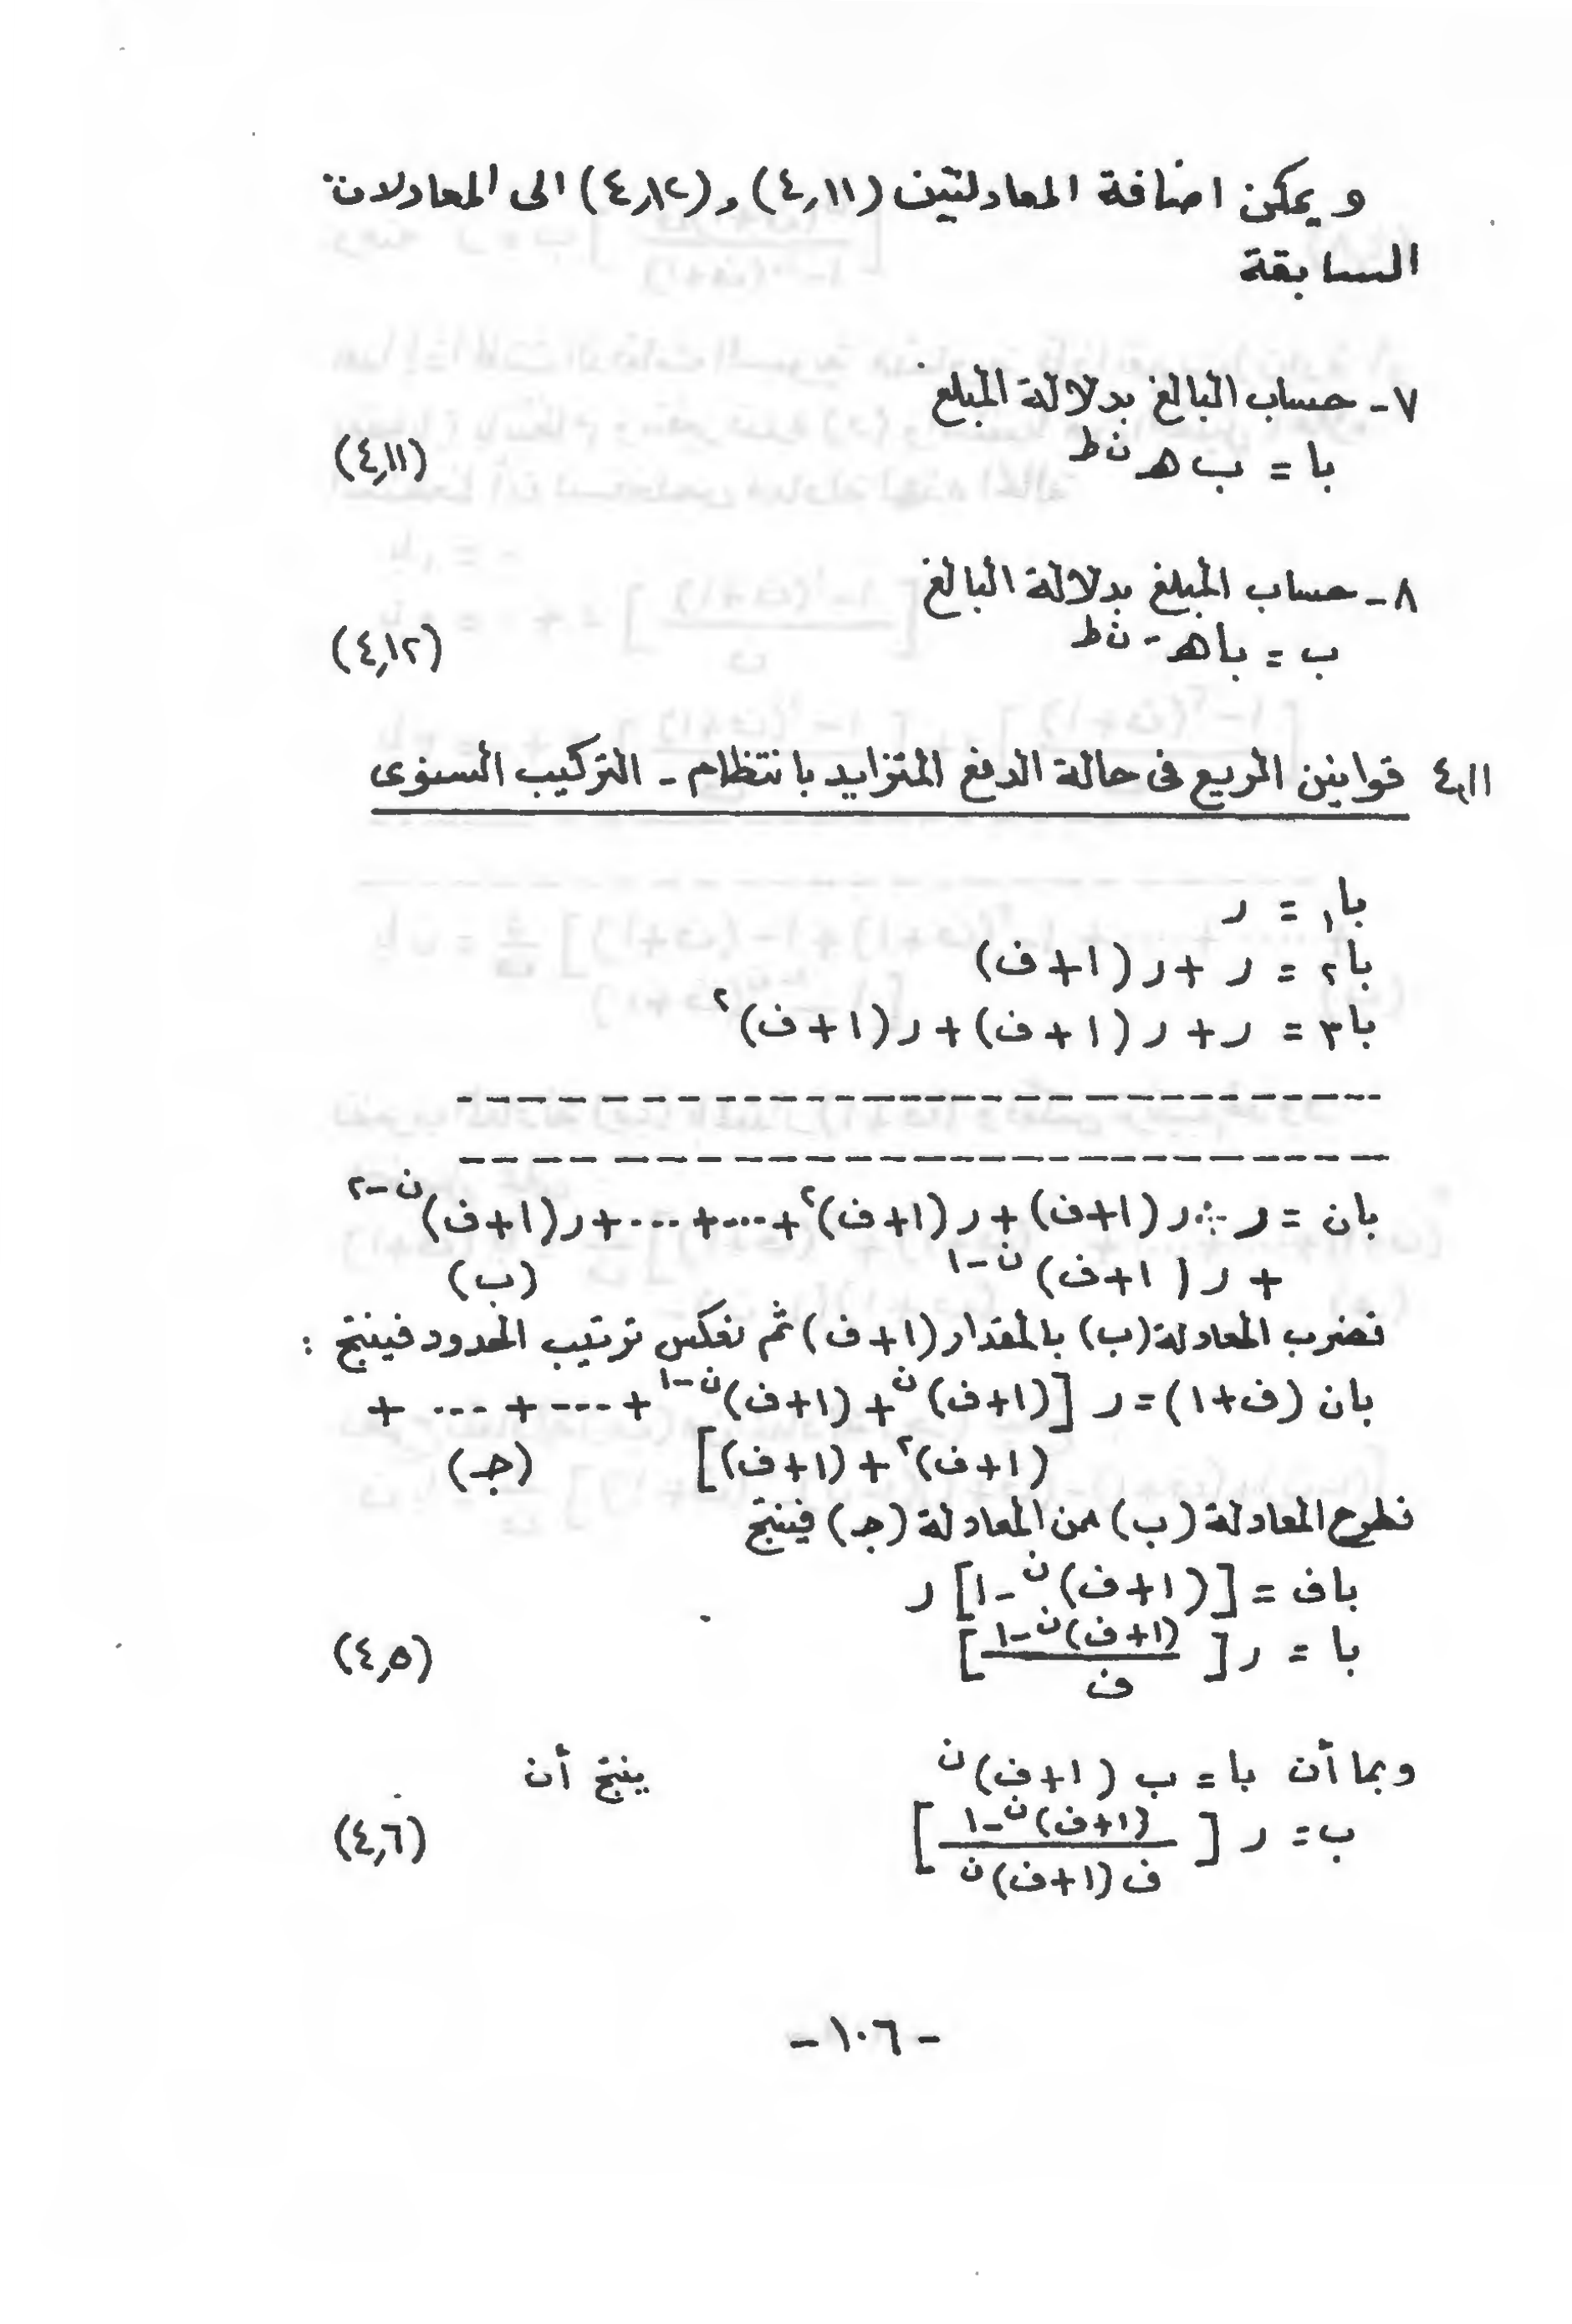 ويمكن اضافة المعادلتين (٤,١١) و(٤,١٢) الى المعادلات
السابقة
٧- حساب البالغ بدلالة المبلغ
با = ب هـ^ن ط (٤,١١)
٨- حساب المبلغ بدلالة البالغ
ب = با هـ^-ن ط (٤,١٢)
٤,١١ قوانين الريع فى حالة الدفع المتزايد بانتظام - التركيب السنوى
با١ = ر
با٢ = ر + ر (١+ف)
با٣ = ر + ر (١+ف) + ر (١+ف)^٢
بان = ر + ر (١+ف) + ر (١+ف)^٢ + ... + ... + ر (١+ف)^ن-٢
+ ر (١+ف)^ن-١ (ب)
نضرب المعادلة (ب) بالمقدار (١+ف) ثم نعكس ترتيب الحدود فينتج :
بان (ف+١) = ر [(١+ف)^ن + (١+ف)^ن-١ + ... + ... +
(١+ف)^٢ + (١+ف)] (جـ)
نطرح المعادلة (ب) من المعادلة (جـ) فينتج
باف = [(١+ف)^ن - ١] ر
با = ر [((١+ف)^ن - ١) / ف] (٤,٥)
وبما أن با = ب (١+ف)^ن ينتج أن
ب = ر [((١+ف)^ن - ١) / ف (١+ف)^ن] (٤,٦)
- ١٠٦ -